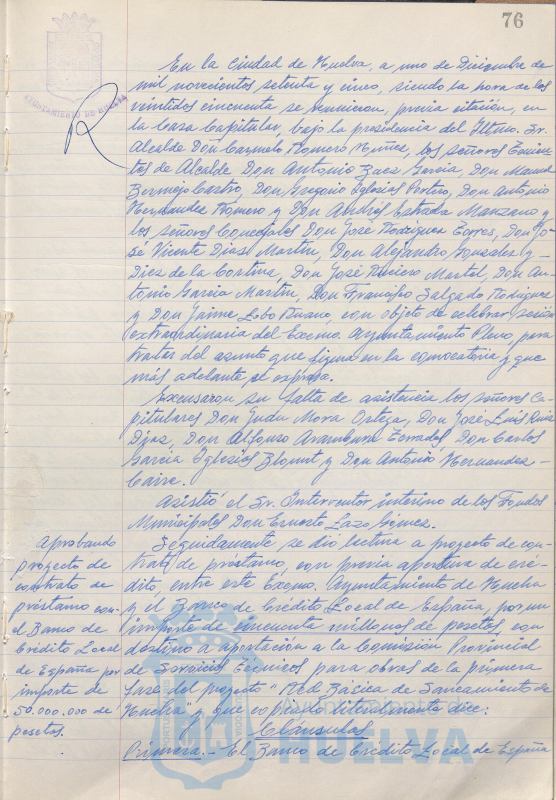 76
AYUNTAMIENTO DE HUELVA
En la Ciudad de Huelva, a uno de Diciembre de
mil novecientos setenta y cinco, siendo la hora de las
veintidos cincuenta se reunieron, previa citación, en
la Casa Capitular, bajo la presidencia del Iltmo. Sr.
Alcalde Don Carmelo Romero Núñez, los señores Tenien-
tes de Alcalde Don Antonio Baez García, Don Manuel
Bermejo Castro, Don Gregorio Iglesias Portero, Don Antonio
Hernandez Romero y Don Andrés Estrada Manzano y
los señores Concejales Don José Rodriguez Torres, Don Jo-
sé Vicente Dias Martín, Don Alejandro Gonzalez y
Diez de la Cortina, Don José Ruciero Martel, Don An-
tonio García Martín, Don Francisco Salgado Rodriguez
y Don Jaime Lobo Ruano, con objeto de celebrar sesión
extraordinaria del Excmo. Ayuntamiento Pleno, para
tratar del asunto que figura en la convocatoria y que
más adelante se expresa.
Excusaron su falta de asistencia los señores Ca-
pitulares Don Mora Ortega, Don José Luis Ruiz
Díaz, Don Alfonso Aramburu Terrades, Don Carlos
García Iglesias Blount, y Don Antonio Hernandez-
Asistió el Sr. Interventor interino de los Fondos
Municipales Don Ernesto Lazo Gómez.
Aprobando
proyecto de
contrato de
préstamo con
el Banco de
Crédito Local
de España por
importe de
50.000.000 de
pesetas.
Seguidamente se dió lectura a proyecto de con-
trato de préstamo, con previa apertura de cré-
dito, entre este Excmo. Ayuntamiento de Huelva
y el Banco de Crédito Local de España, por un
importe de cincuenta millones de pesetas con
destino a aportación a la Comisión Provincial
de Servicios Técnicos para obras de la primera
fase del proyecto "Red Básica de Saneamiento de
Huelva" y que copiado literalmente dice:
Cláusulas
Primera.- El Banco de Crédito Local de España
HUELVA